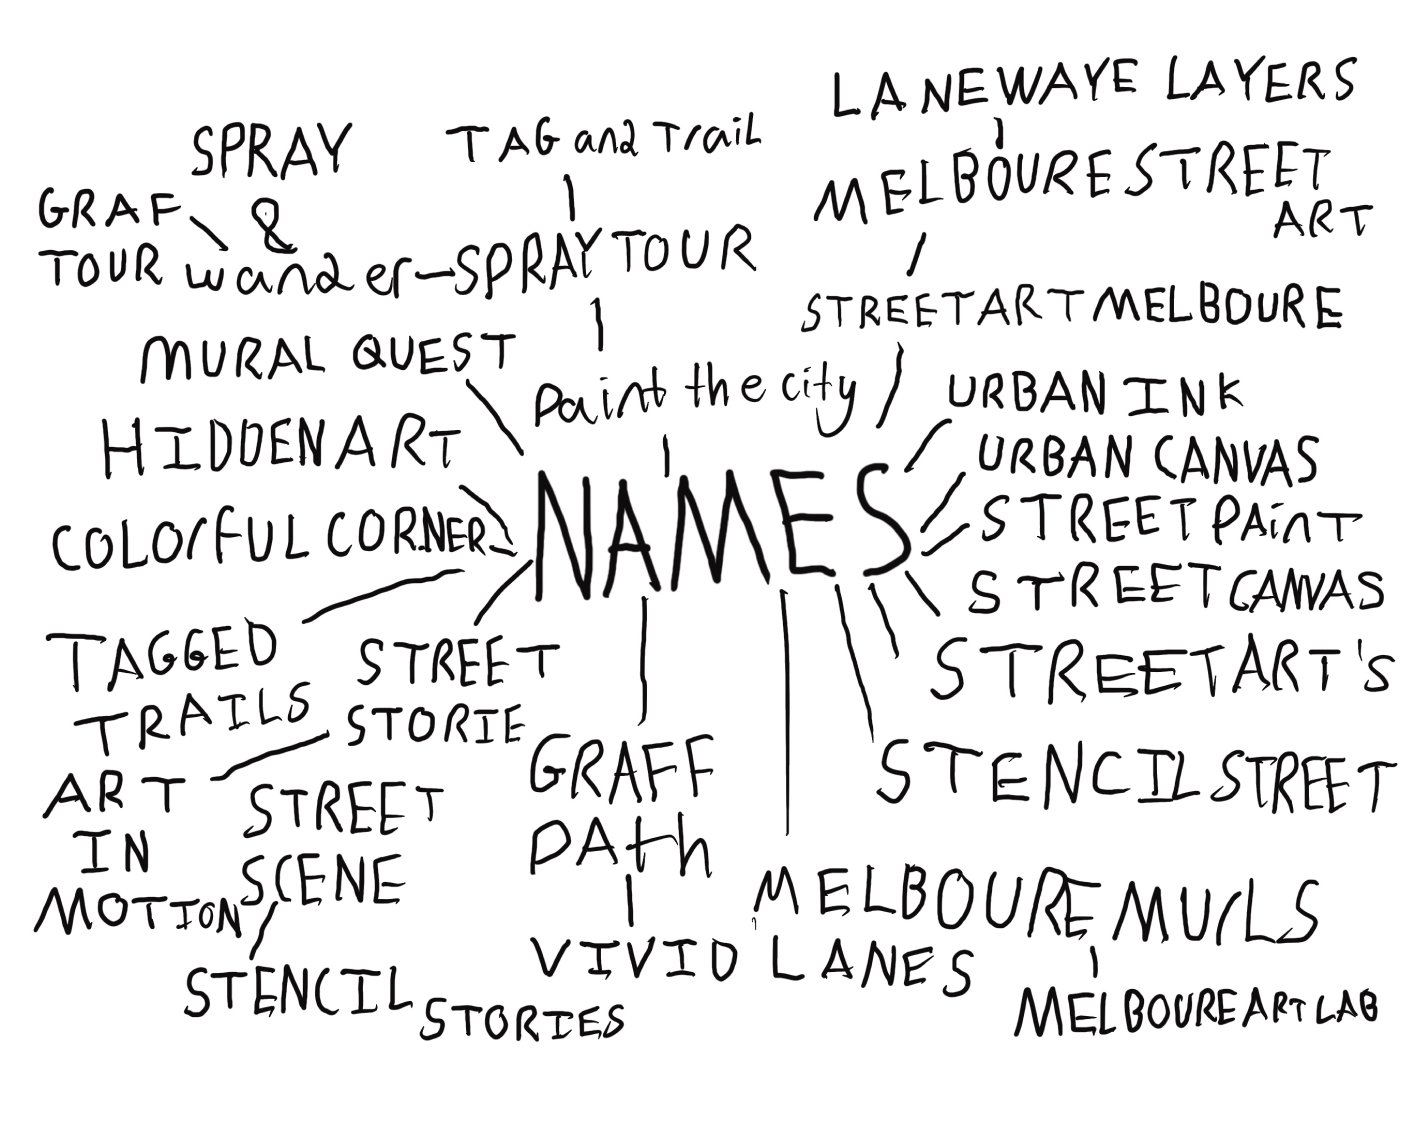 LANEWAYE LAYERS
SPRAY
&
wander
TAG and Trail
MELBOURE STREET
ART
GRAF
TOUR
SPRAY TOUR
STREET ART MELBOURE
MURAL QUEST
paint the city
URBAN INK
HIDDEN ART
URBAN CANVAS
NAMES
COLORFUL CORNER
STREET PAINT
STREET CANVAS
TAGGED
TRAILS
STREET
STORIE
STREET ART'S
GRAFF
PATH
STENCIL STREET
ART
IN
MOTION
STREET
SCENE
MELBOURE MURLS
VIVID LANES
STENCIL STORIES
MELBOURE ART LAB